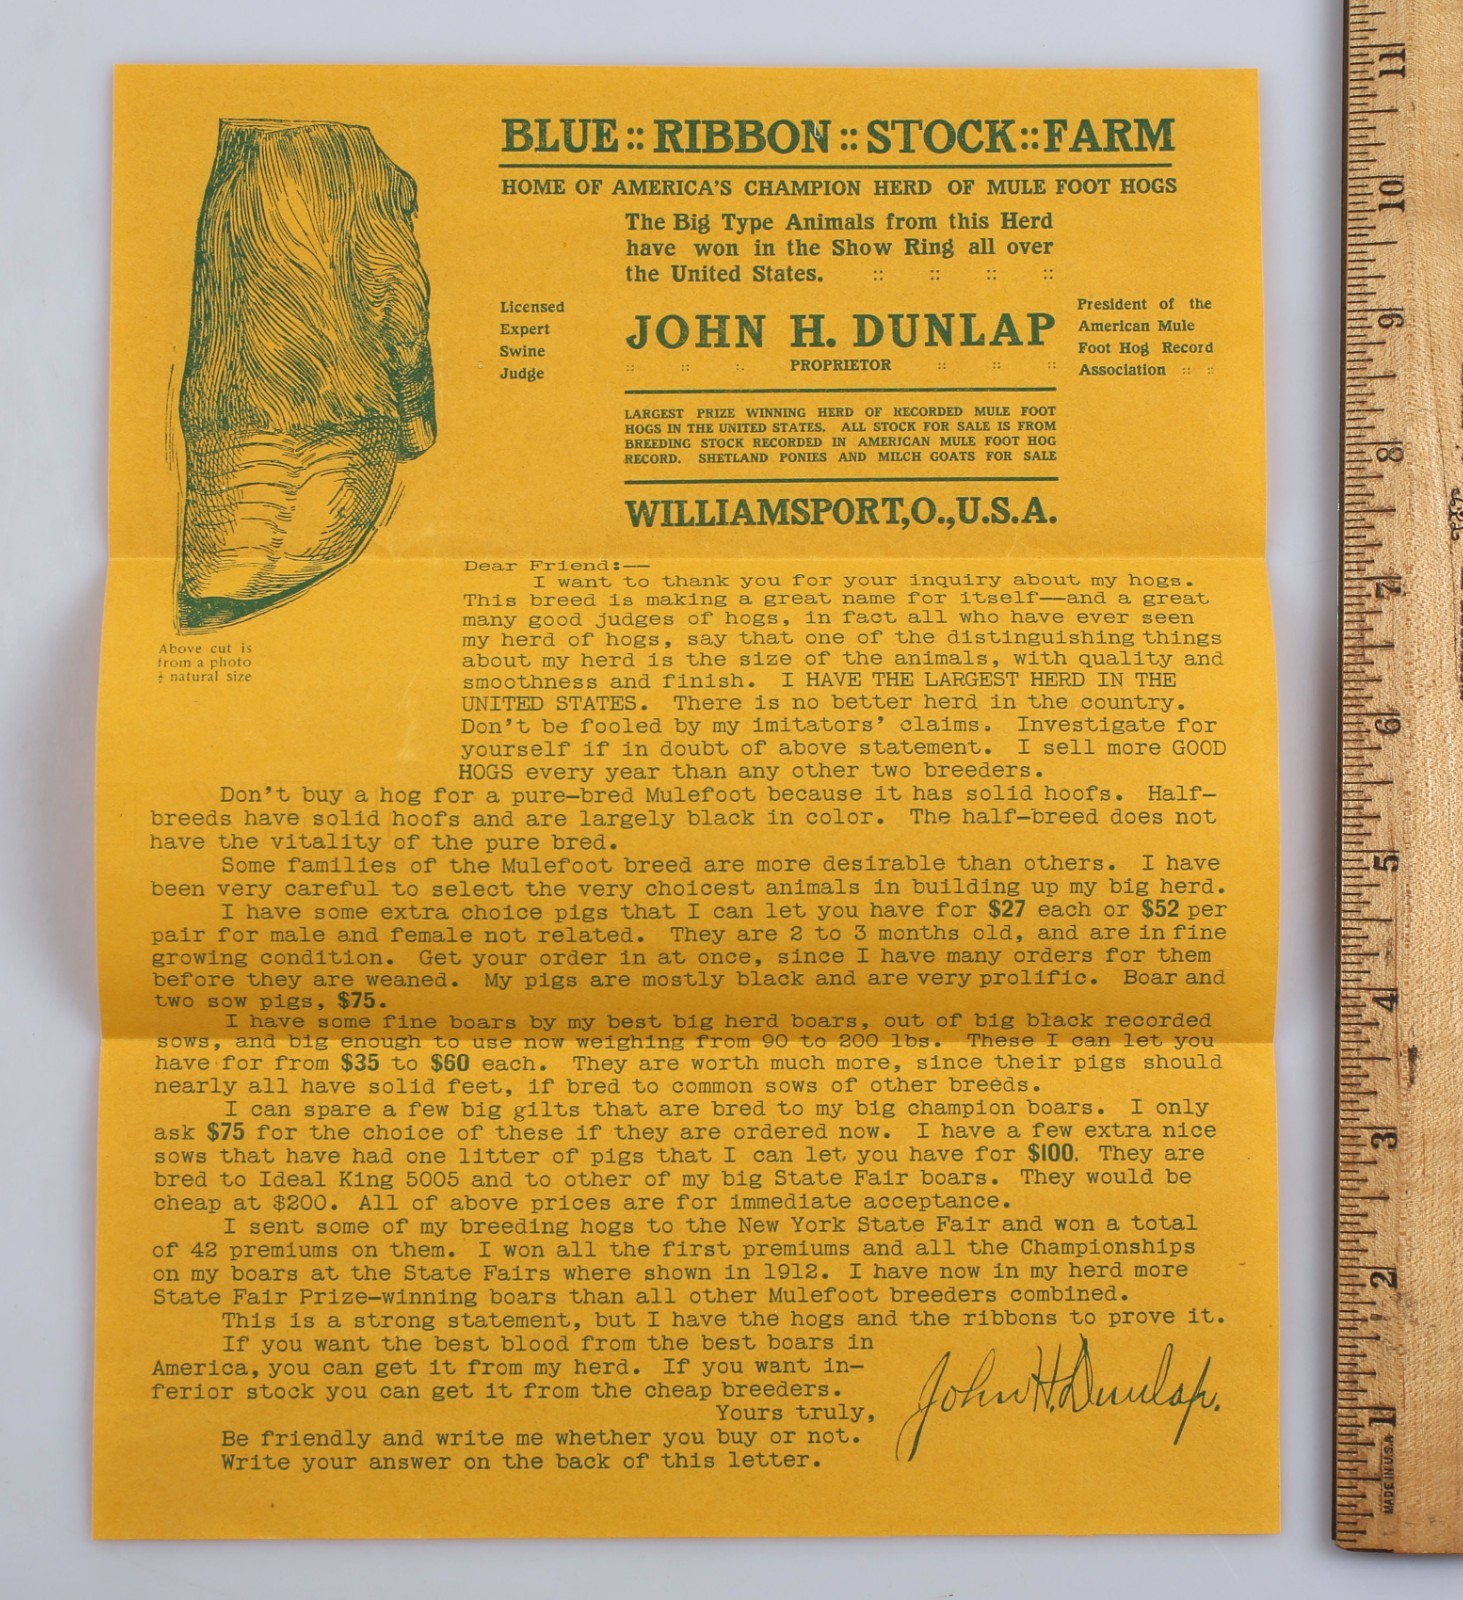 BLUE :: RIBBON :: STOCK :: FARM
HOME OF AMERICA'S CHAMPION HERD OF MULE FOOT HOGS
The Big Type Animals from this Herd
have won in the Show Ring all over
the United States. :: :: :: ::
Licensed
Expert
Swine
Judge
JOHN H. DUNLAP
:: :: :. PROPRIETOR :: :: ::
President of the
American Mule
Foot Hog Record
Association :: ::
LARGEST PRIZE WINNING HERD OF RECORDED MULE FOOT
HOGS IN THE UNITED STATES. ALL STOCK FOR SALE IS FROM
BREEDING STOCK RECORDED IN AMERICAN MULE FOOT HOG
RECORD. SHETLAND PONIES AND MILCH GOATS FOR SALE
WILLIAMSPORT,O.,U.S.A.
Above cut is
from a photo
½ natural size
Dear Friend:--
I want to thank you for your inquiry about my hogs.
This breed is making a great name for itself--and a great
many good judges of hogs, in fact all who have ever seen
my herd of hogs, say that one of the distinguishing things
about my herd is the size of the animals, with quality and
smoothness and finish. I HAVE THE LARGEST HERD IN THE
UNITED STATES. There is no better herd in the country.
Don't be fooled by my imitators' claims. Investigate for
yourself if in doubt of above statement. I sell more GOOD
HOGS every year than any other two breeders.
Don't buy a hog for a pure-bred Mulefoot because it has solid hoofs. Half-
breeds have solid hoofs and are largely black in color. The half-breed does not
have the vitality of the pure bred.
Some families of the Mulefoot breed are more desirable than others. I have
been very careful to select the very choicest animals in building up my big herd.
I have some extra choice pigs that I can let you have for $27 each or $52 per
pair for male and female not related. They are 2 to 3 months old, and are in fine
growing condition. Get your order in at once, since I have many orders for them
before they are weaned. My pigs are mostly black and are very prolific. Boar and
two sow pigs, $75.
I have some fine boars by my best big herd boars, out of big black recorded
sows, and big enough to use now weighing from 90 to 200 lbs. These I can let you
have for from $35 to $60 each. They are worth much more, since their pigs should
nearly all have solid feet, if bred to common sows of other breeds.
I can spare a few big gilts that are bred to my big champion boars. I only
ask $75 for the choice of these if they are ordered now. I have a few extra nice
sows that have had one litter of pigs that I can let you have for $100. They are
bred to Ideal King 5005 and to other of my big State Fair boars. They would be
cheap at $200. All of above prices are for immediate acceptance.
I sent some of my breeding hogs to the New York State Fair and won a total
of 42 premiums on them. I won all the first premiums and all the Championships
on my boars at the State Fairs where shown in 1912. I have now in my herd more
State Fair Prize-winning boars than all other Mulefoot breeders combined.
This is a strong statement, but I have the hogs and the ribbons to prove it.
If you want the best blood from the best boars in
America, you can get it from my herd. If you want in-
ferior stock you can get it from the cheap breeders.
Yours truly,
John H. Dunlap.
Be friendly and write me whether you buy or not.
Write your answer on the back of this letter.
11
10
9
8
7
6
5
4
3
2
1
MADE IN U.S.A